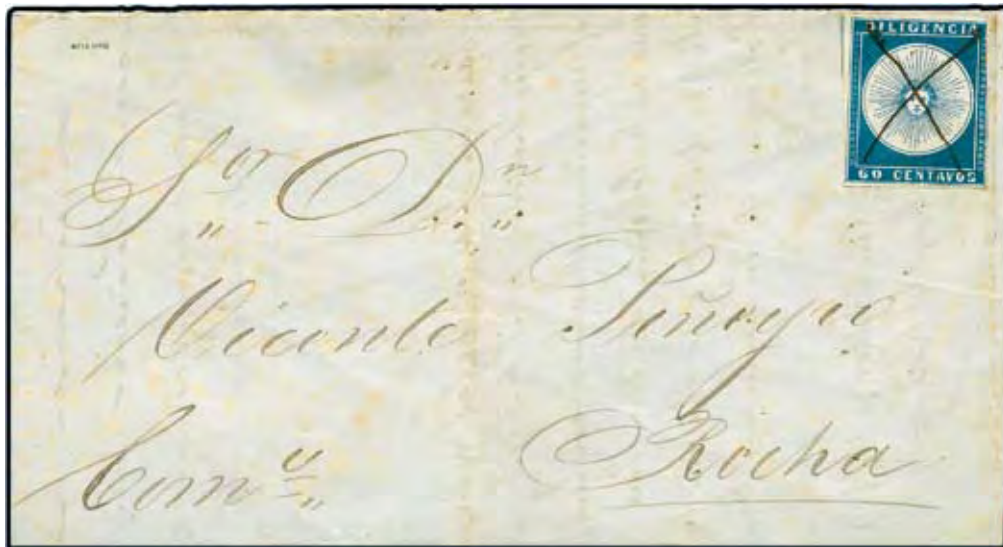 DILIGENCIA
60 CENTAVOS
Sor Dn
Vicente Piñeyro
Como Rocha